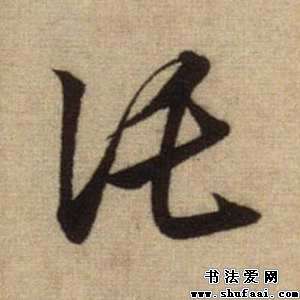 託
书法爱网
www.shufaai.com